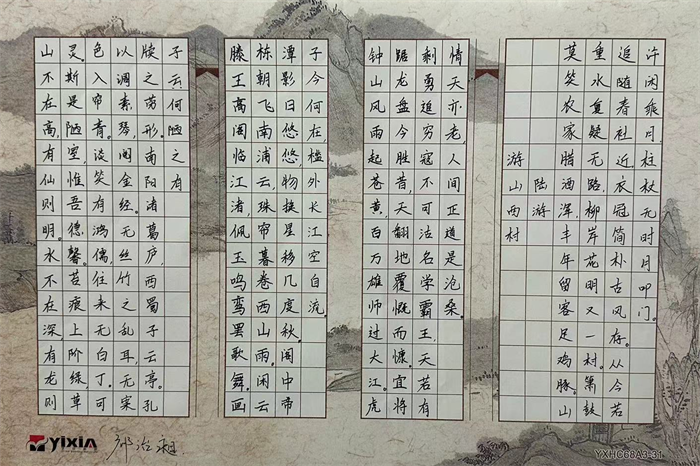 山不在高有仙则明。水不在深有龙则
灵斯是陋室,惟吾德馨。苔痕上阶绿,草
色入帘青。谈笑有鸿儒往来无白丁。可
以调素琴,阅金经。无丝竹之乱耳,无案
牍之劳形。南阳诸葛庐,西蜀子云亭。孔
子云何陋之有
滕王高阁临江渚,佩玉鸣鸾罢歌舞。画
栋朝飞南浦云,珠帘暮卷西山雨。闲云
潭影日悠悠,物换星移几度秋。阁中帝
子今何在,槛外长江空自流。
钟山风雨起苍黄,百万雄师过大江。虎
踞龙盘今胜昔,天翻地覆慨而慷。宜将
剩勇追穷寇,不可沽名学霸王,天若有
情天亦老,人间正道是沧桑。
游山西村
陆游
莫笑农家腊酒浑丰年留客足鸡豚。山
重水复疑无路,柳岸花明又一村。箫鼓
追随春社近,衣冠简朴古风存。从今若
许闲乘月,柱杖无时月叩门。
YIXIA
YXHC68A3-31